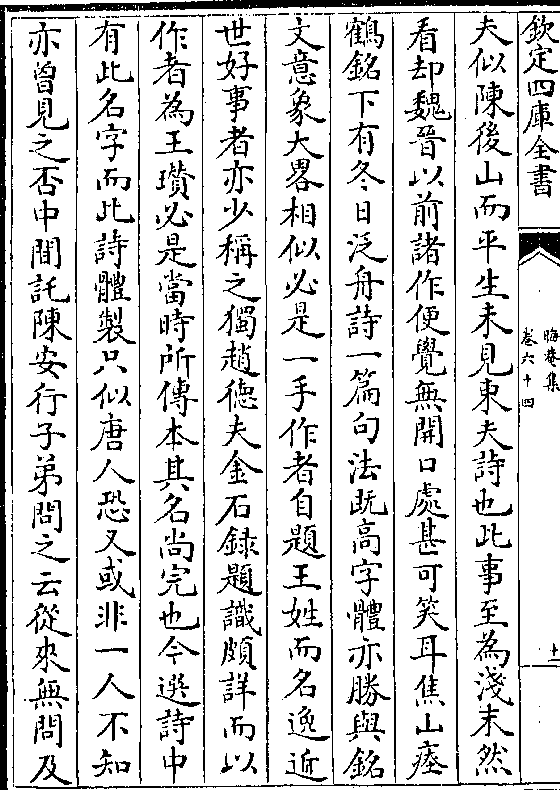 欽定四庫全書
晦菴集
卷六十四
十
夫似陳後山而平生未見東夫詩也此事至為淺末然
看却魏晉以前諸作便覺無開口處甚可笑耳焦山瘞
鶴銘下有冬日泛舟詩一篇句法既高字體亦勝與銘
文意象大畧相似必是一手作者自題王姓而名逸近
世好事者亦少稱之獨趙德夫金石録題識頗詳而以
作者為王瓚必是當時所傳本其名尚完也今選詩中
有此名字而此詩體製只似唐人恐又或非一人不知
亦曾見之否中間託陳安行子弟問之云從來無問及